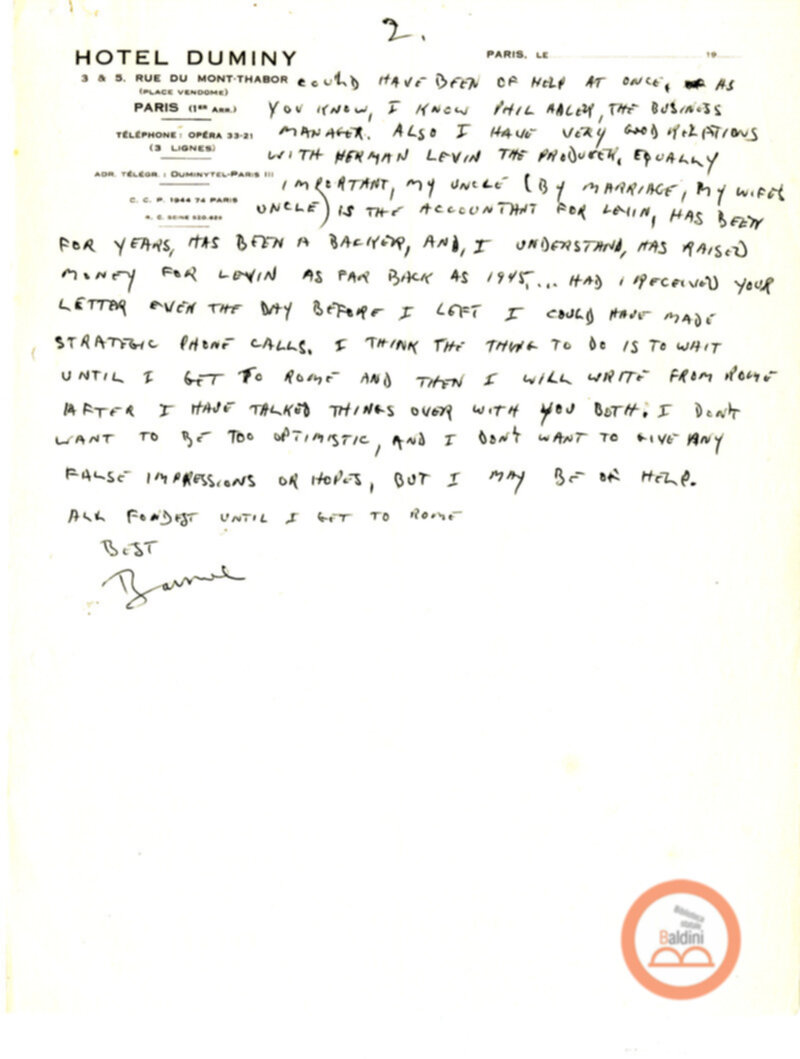 2.
HOTEL DUMINY
3 & 5, RUE DU MONT-THABOR
(PLACE VENDOME)
PARIS (1ER ARR.)
TÉLÉPHONE : OPÉRA 33-21
(3 LIGNES)
ADR. TÉLÉGR. : DUMINYTEL-PARIS III
C. C. P. 1944 74 PARIS
R. C. SEINE 520.626
PARIS, LE 19
COULD HAVE BEEN OF HELP AT ONCE, AS
YOU KNOW, I KNOW PHIL ADLER, THE BUSINESS
MANAGER. ALSO I HAVE VERY GOOD RELATIONS
WITH HERMAN LEVIN THE PRODUCER. EQUALLY
IMPORTANT, MY UNCLE (BY MARRIAGE, MY WIFE'S
UNCLE) IS THE ACCOUNTANT FOR LEVIN, HAS BEEN
FOR YEARS, HAS BEEN A BACKER, AND, I UNDERSTAND, HAS RAISED
MONEY FOR LEVIN AS FAR BACK AS 1945,... HAD I RECEIVED YOUR
LETTER EVEN THE DAY BEFORE I LEFT I COULD HAVE MADE
STRATEGIC PHONE CALLS. I THINK THE THING TO DO IS TO WAIT
UNTIL I GET TO ROME AND THEN I WILL WRITE FROM ROME
AFTER I HAVE TALKED THINGS OVER WITH YOU BOTH. I DON'T
WANT TO BE TOO OPTIMISTIC, AND I DON'T WANT TO GIVE ANY
FALSE IMPRESSIONS OR HOPES, BUT I MAY BE OF HELP.
ALL FONDEST UNTIL I GET TO ROME
BEST
Biblioteca
statale
Baldini